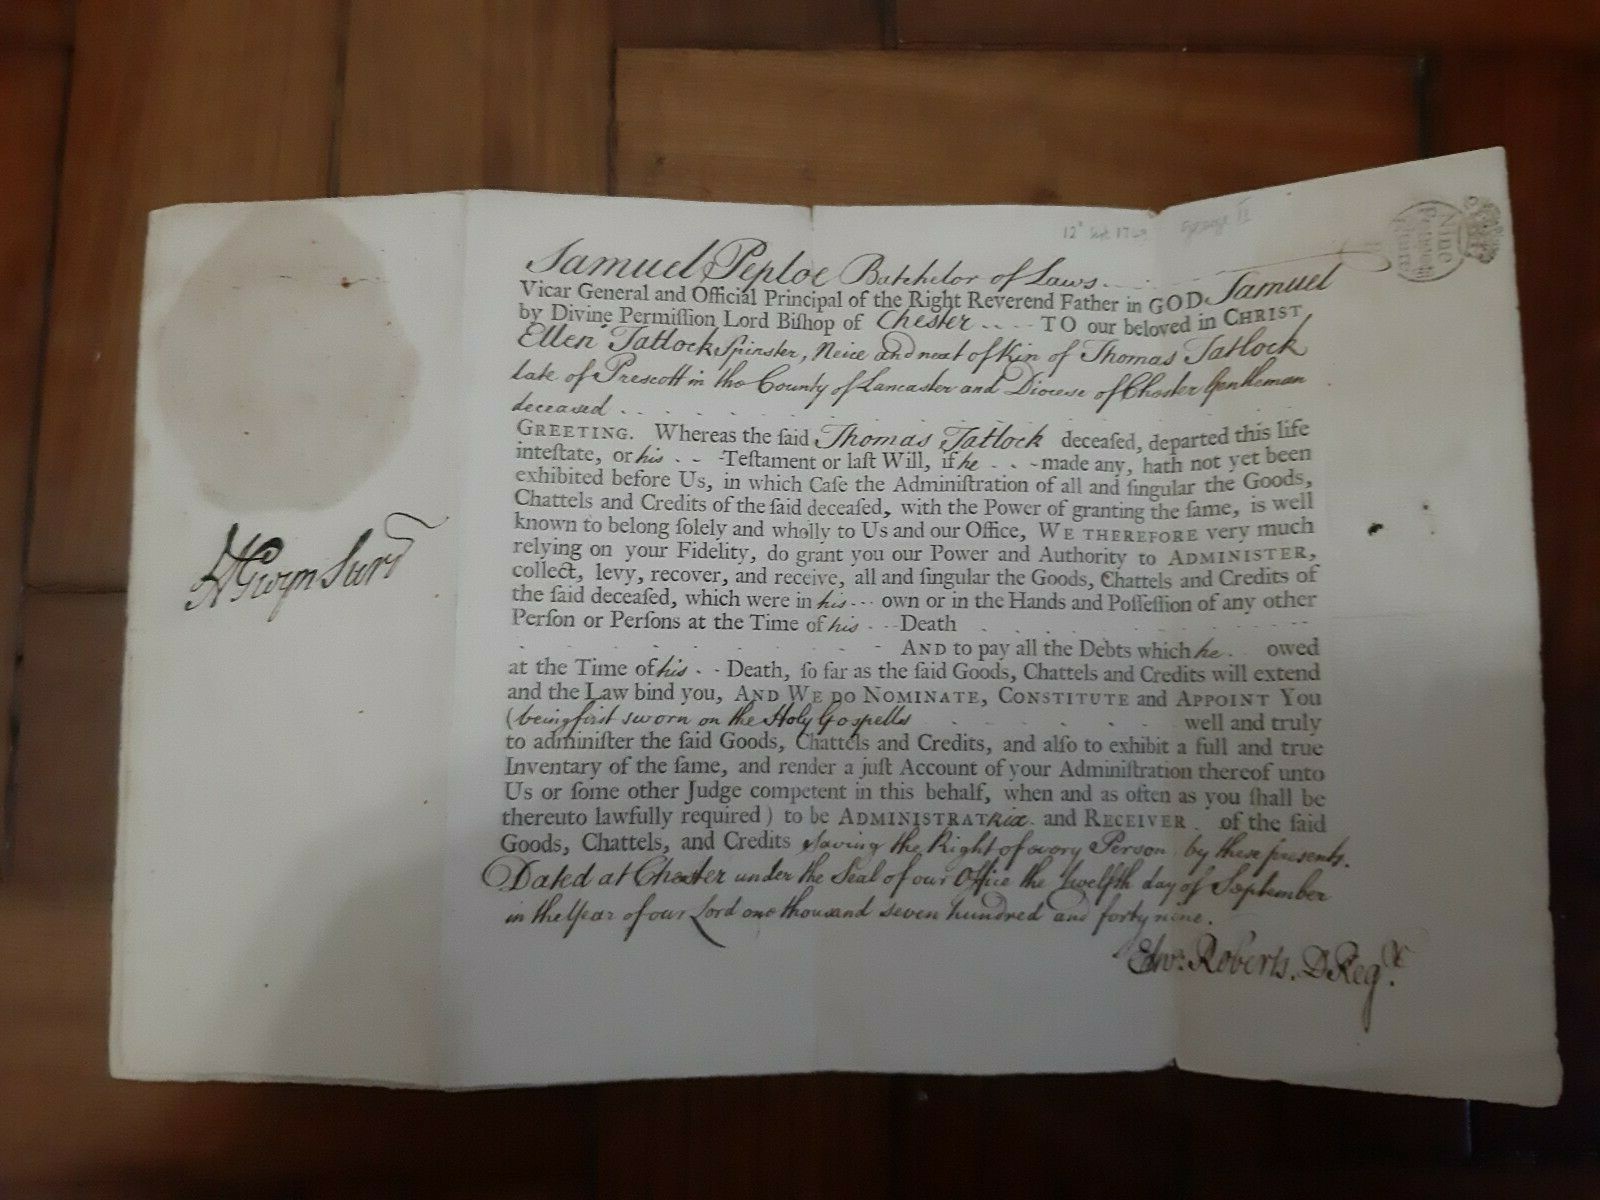 12th Sept 1749 George II
Nine Pence per Quire
Samuel Peploe Batchelor of Laws
Vicar General and Official Principal of the Right Reverend Father in GOD Samuel
by Divine Permiſſion Lord Biſhop of Chester .... TO our beloved in CHRIST
Ellen Tatlock Spinster, Neice and next of Kin of Thomas Tatlock
late of Prescott in the County of Lancaster and Diocese of Chester Gentleman
deceased . . . . . . . . . .
GREETING. Whereas the ſaid Thomas Tatlock deceaſed, departed this life
inteſtate, or his . . -Teſtament or laſt Will, if he . . -made any, hath not yet been
exhibited before Us, in which Caſe the Adminiſtration of all and ſingular the Goods,
Chattels and Credits of the ſaid deceaſed, with the Power of granting the ſame, is well
known to belong ſolely and wholly to Us and our Office, WE THEREFORE very much
relying on your Fidelity, do grant you our Power and Authority to ADMINISTER,
collect, levy, recover, and receive, all and ſingular the Goods, Chattels and Credits of
the ſaid deceaſed, which were in his ... own or in the Hands and Poſſeſſion of any other
Perſon or Perſons at the Time of his . . Death . . . . . . . .
. . . . . . . . AND to pay all the Debts which he . . owed
at the Time of his . . Death, ſo far as the ſaid Goods, Chattels and Credits will extend
and the Law bind you, AND WE DO NOMINATE, CONSTITUTE and APPOINT YOU
(being first sworn on the Holy Gospells . . . . . . well and truly
to adminiſter the ſaid Goods, Chattels and Credits, and alſo to exhibit a full and true
Inventary of the ſame, and render a juſt Account of your Adminiſtration thereof unto
Us or ſome other Judge competent in this behalf, when and as often as you ſhall be
thereuto lawfully required) to be ADMINISTRATRix and RECEIVER of the ſaid
Goods, Chattels, and Credits saving the Right of every Person by these presents.
Dated at Chester under the Seal of our Office the Twelfth day of September
in the Year of our Lord one thousand seven hundred and forty nine.
Edwd. Roberts. D Regr.